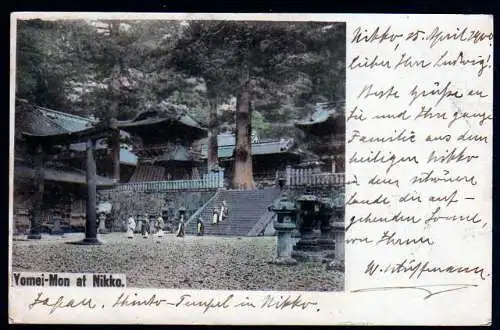 Nikko, 25. April 1900
lieber Herr Ludwig!
Beste Grüße an
Sie und Ihre ganze
Familie aus dem
heiligen Nikko
in dem schönen
Lande der auf-
gehenden Sonne,
von Ihrem
W.
Yomei-Mon at Nikko.
Japan. Shinto-Tempel in Nikko.